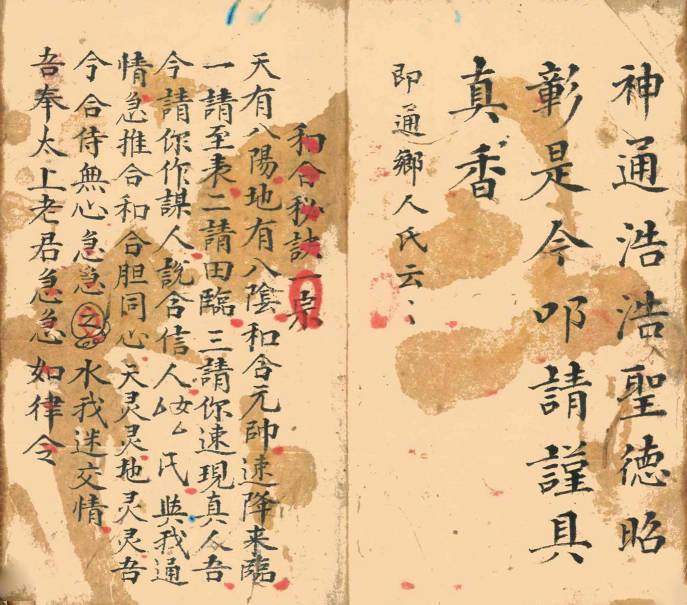 神通浩浩聖德昭
彰是今叩請謹具
真香
即通鄉人氏云
和合秘訣一
天有八陽地有八陰和合元帥速降来臨
一請至表二請田臨三請你速現真人吾
今請你作謀人說合信人女氏與我通
情急推合和合胆同心天灵灵地灵灵吾
今合侍無心急急水我迷交情
吾奉太上老君急急如律令